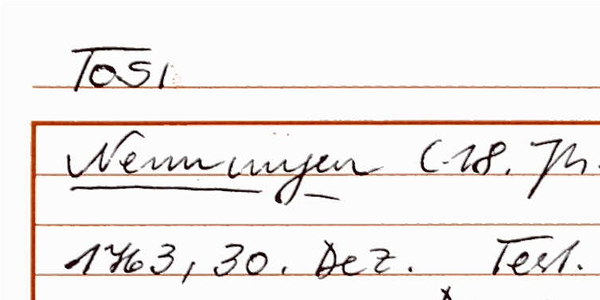 Tosi
Nenningen (18. Jh.
1763, 30. Dez. Test.